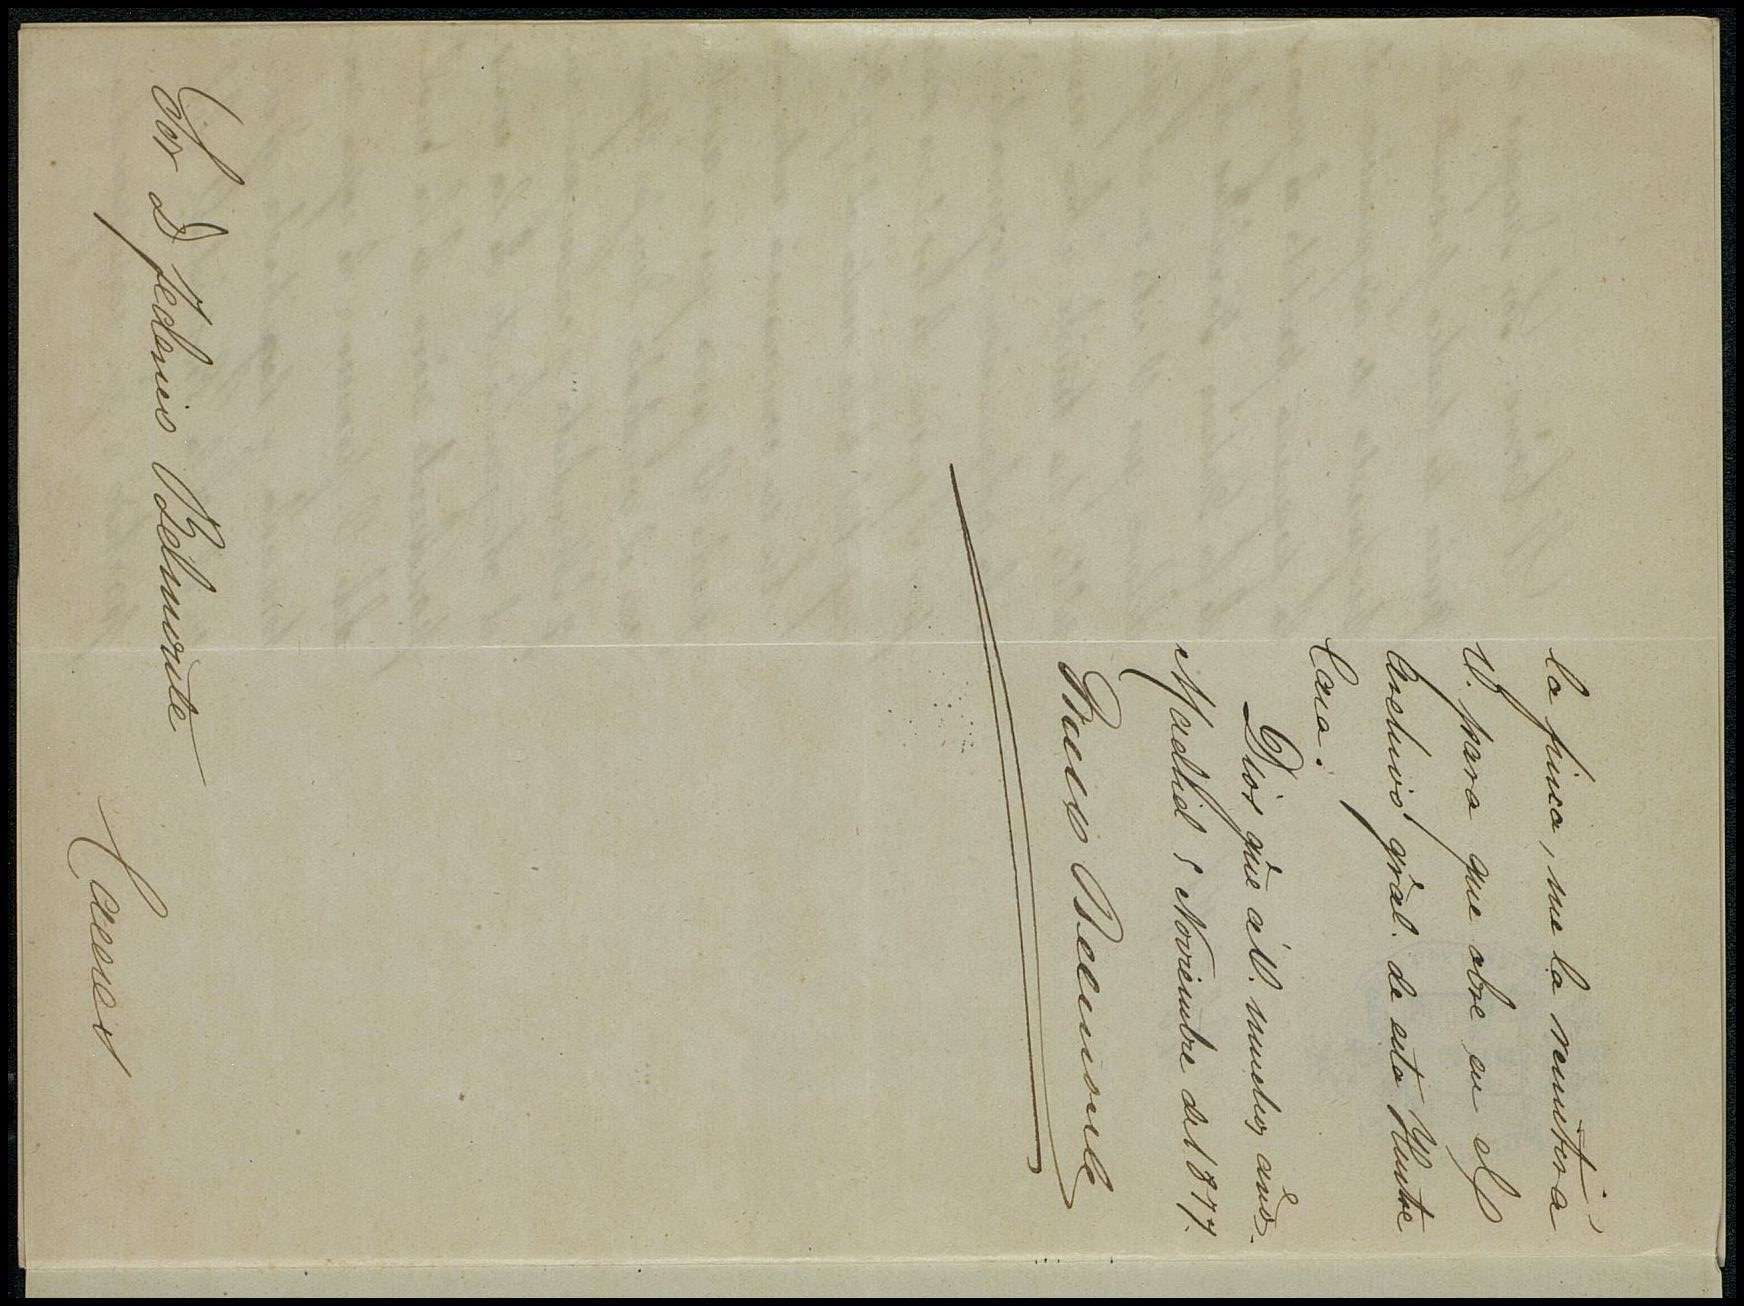 la finca, me la remitirá
V. para que obre en el
Archivo gral. de esta Ilustre
Casa.
Dios gue a V. muchos años.
Madrid 5 Noviembre de 1877.
Bruno
Sor D Federico Belmonte
Caceres